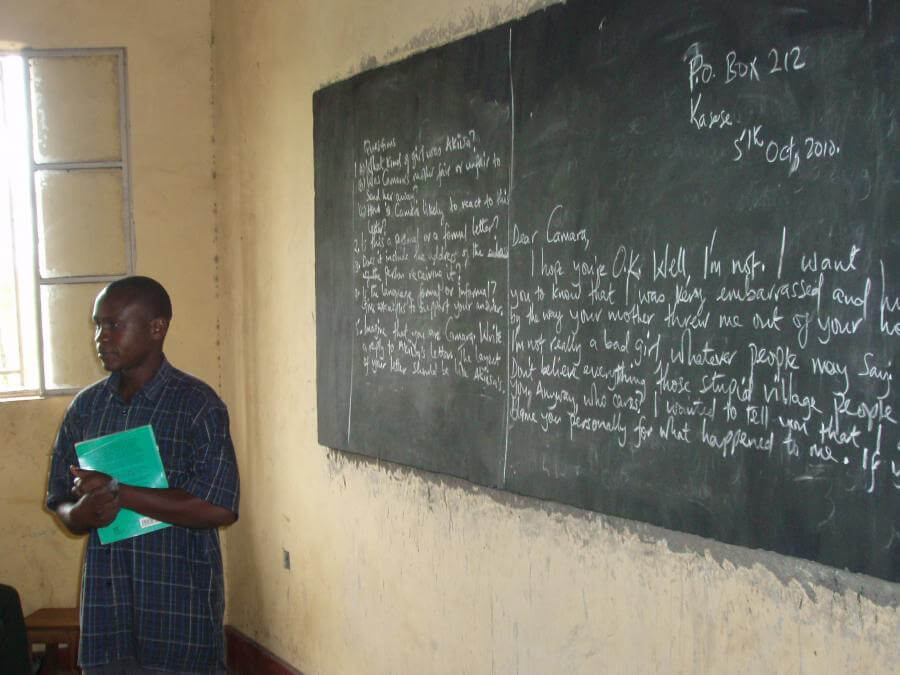 Questions
a) What kind of girl was Akiisa?
b) Was Camara's mother fair or unfair to
send her away?
c) How is Camara likely to react to this
letter?
2. Is this a or a formal letter?
3. Does it include the address of the
the person receiving it?
Is the language formal or informal?
Give examples to support your answer.
5. Imagine that you are Camara. Write
a reply to Akiisa's letter. The layout
of your letter should be like Akiisa's.
P.O. BOX 212
Kasese
5th Oct, 2010.
Dear Camara,
I hope you're O.K. Well, I'm not. I want
you to know that I was very embarrassed and
by the way your mother threw me out of your
I'm not really a bad girl, whatever people may say.
Dont believe everything those stupid village people
you. Anyway, who cares? I wanted to tell you that I
blame you personally for what happened to me. If